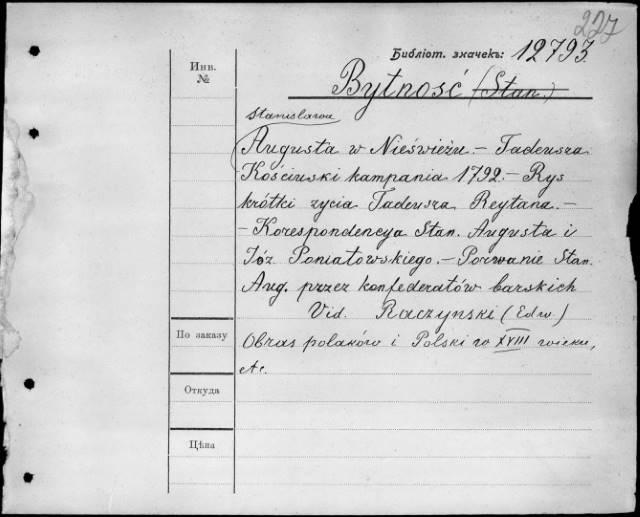 227
Библіот. значекъ: 12793.
Инв.
№
Bytność (Stan.)
Stanislawa
Augusta w Nieświeżu. – Tadeusza
Kościuski kampania 1792. – Rys
krótki zycia Tadeusza Reytana. –
– Korespondencya Stan. Augusta i
Józ. Poniatowskiego. – Porwanie Stan.
Aug. przez konfederatów barskich
Vid. Raczynski (Edw.)
По заказу
Obras polaków i Polski w XVIII wieku,
etc.
Откуда
Цѣна